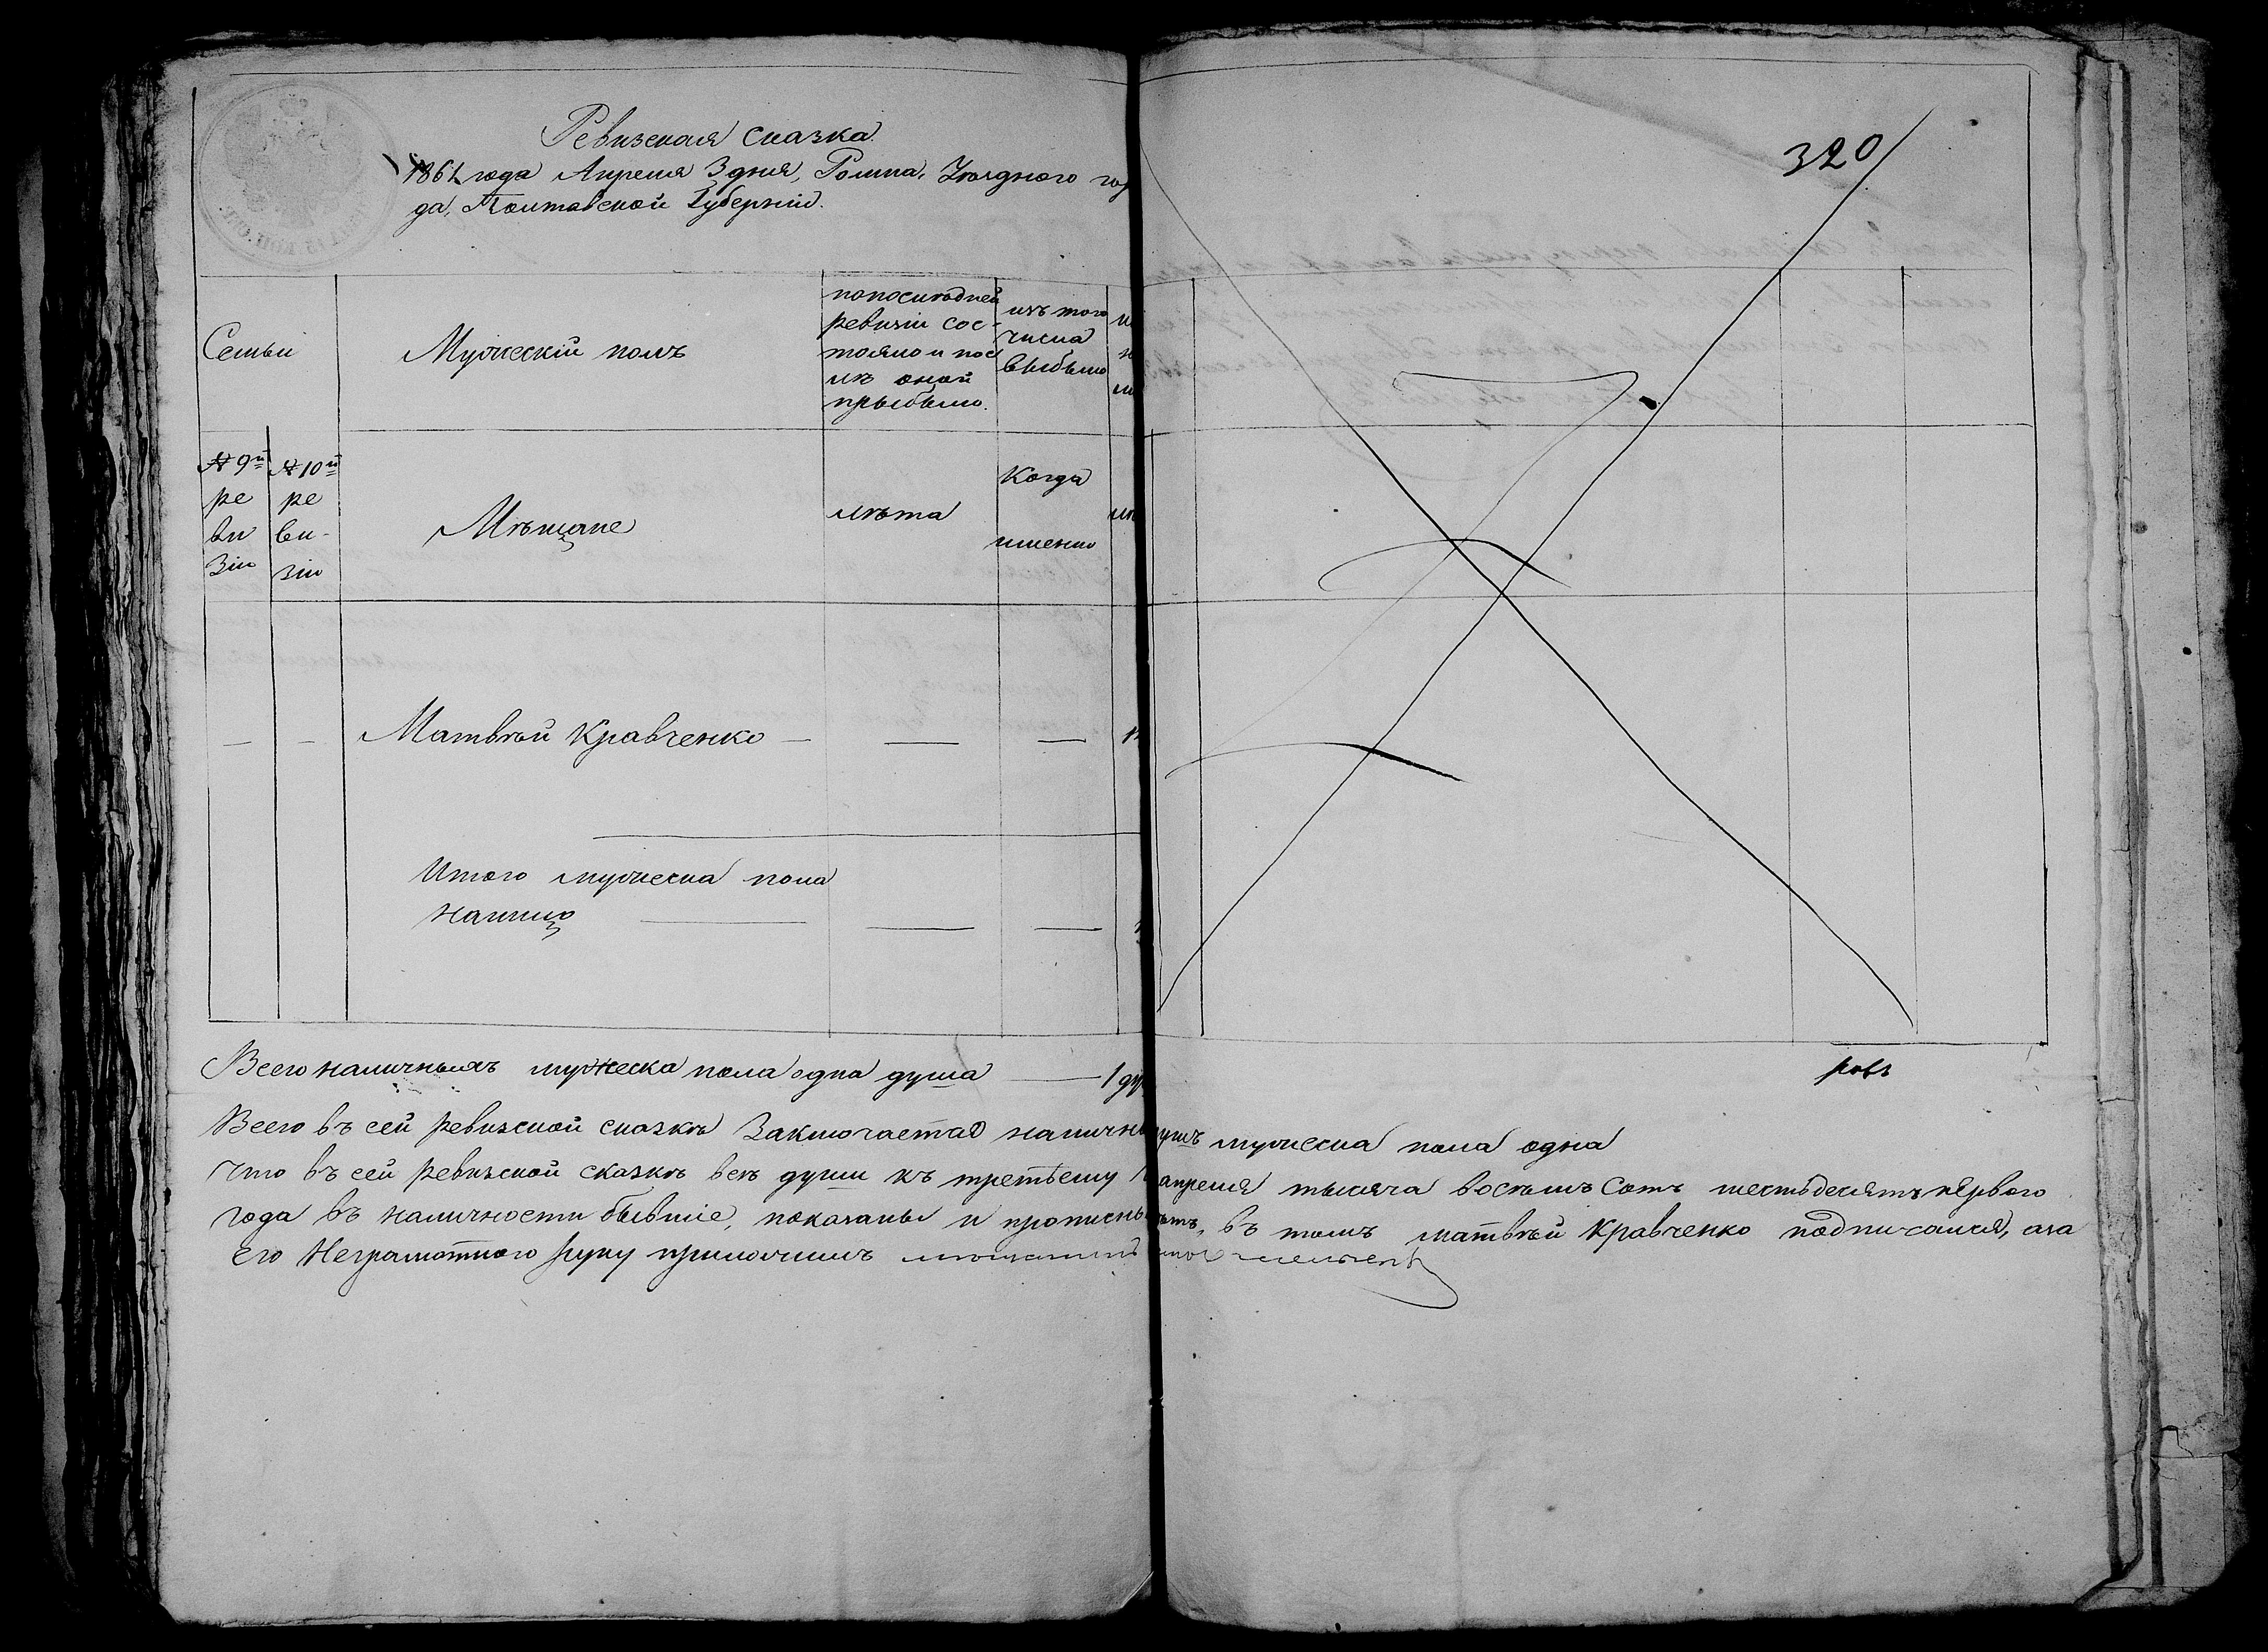 320
Ревизская сказка.
1861 года Апреля 3 дня, Ромна, Уѣзднаго го
да, Полтавской Губерніи.
Семьи
Мужескій полъ
по последней
ревизіи сос-
тояло и пос
лѣ оной
прыбыло.
изъ того
числа
выбыло
№ 9й
ре
ви
зіи
№ 10й
ре
ви-
зіи
Мѣщане
лѣта
Когда
именно
Матвѣй Кравченко
Итого мужеска пола
налицо
Всего наличныхъ мужеска пола одна душа — 1 ду
ровъ
Всего въ сей ревизской сказкѣ Заключается наличны душъ мужеска пола одна
Что въ сей ревизской сказкѣ всѣ души къ третьему апреля тысяча восѣмъ Сотъ шестьдесятъ первого
года въ наличности бывшіе, показаны и прописны нѣтъ, въ томъ матвѣй Кравченко подписался, аза
его Неграмотного руку приложилъ